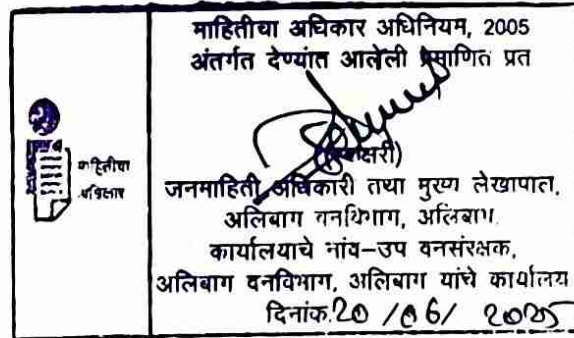 माहितीचा अधिकार अधिनियम, 2005
अंतर्गत देण्यांत आलेली प्रमाणित प्रत
माहितीचा
अधिकार
(स्वाक्षरी)
जनमाहिती अधिकारी तथा मुख्य लेखापाल,
अलिबाग वनविभाग, अलिबाग.
कार्यालयाचे नांव-उप वनसंरक्षक,
अलिबाग वनविभाग, अलिबाग यांचे कार्यालय
दिनांक.20 /06/ 2025